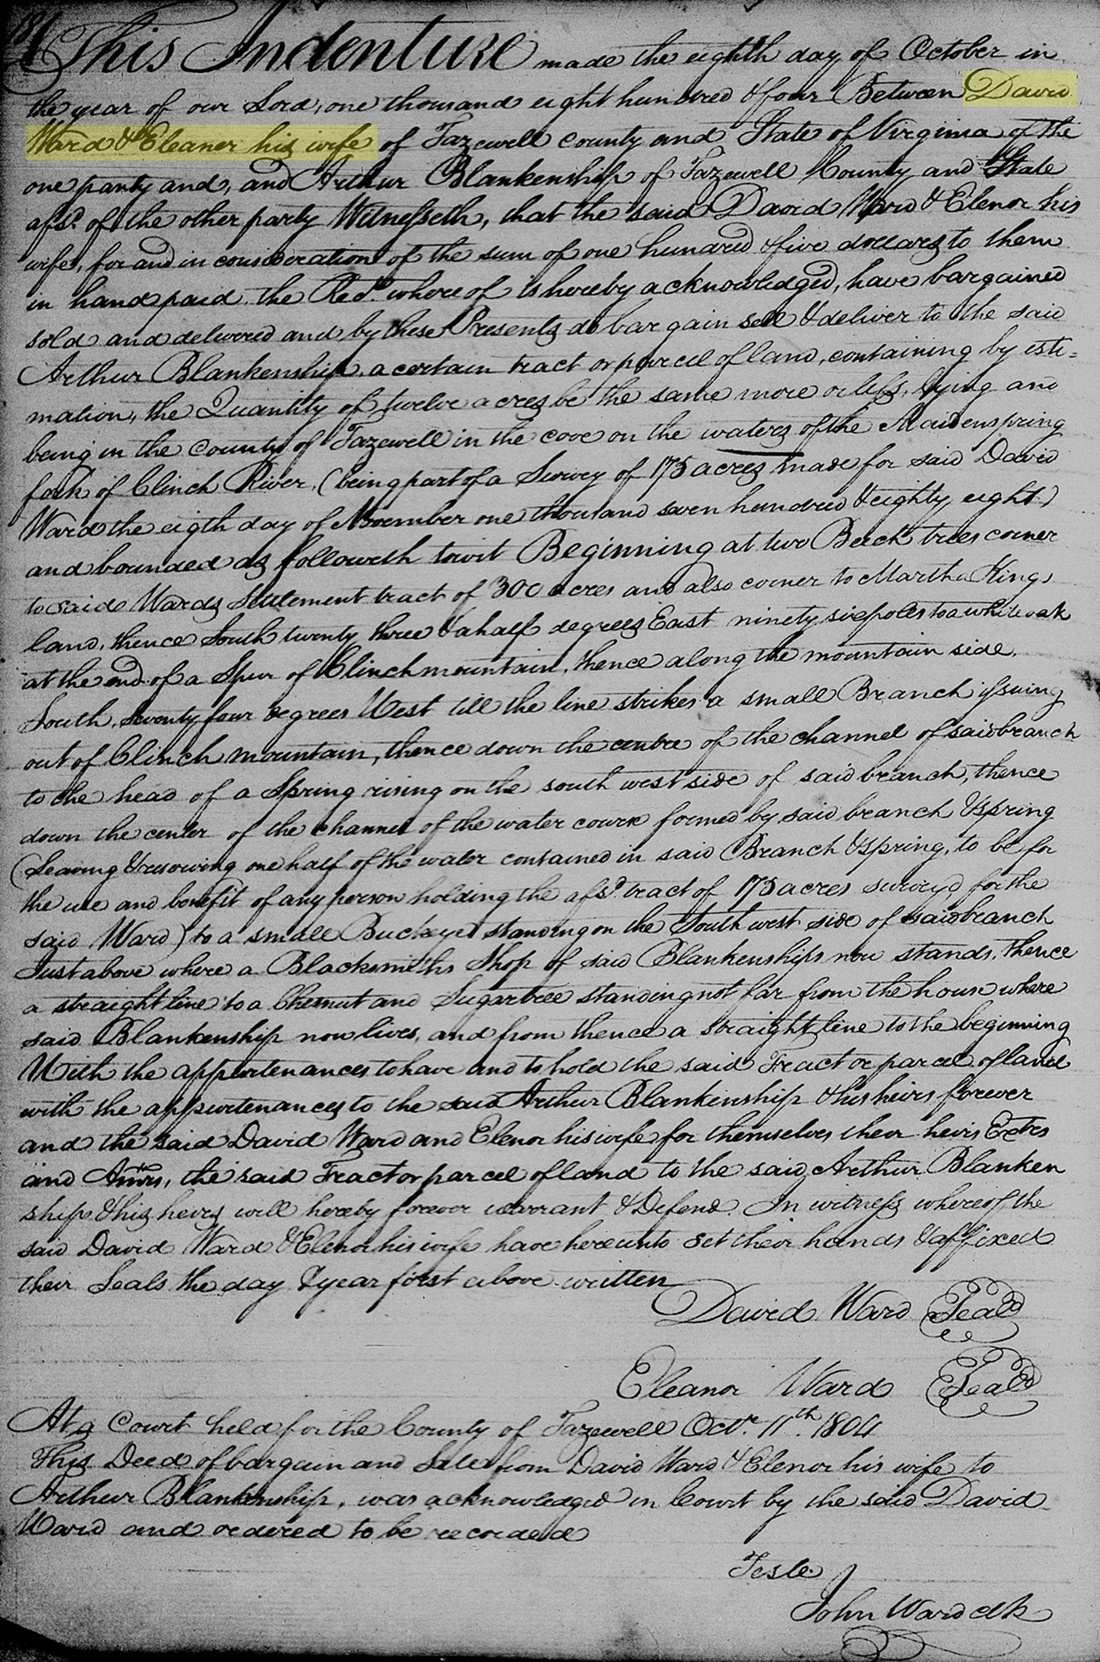 This Indenture made the eighth day of October in
the year of our Lord, one thousand eight hundred & four Between David
Ward & Eleaner his wife of Tazewell county and State of Virginia of the
one party and, and Arthur Blankenship of Tazewell County and State
afsd. of the other party Witnesseth, that the said David Ward & Elenor his
wife, for and in consideration of the sum of one hundred & five dollars to them
in hand paid the Rect. whereof is hereby acknowledged, have bargained
sold and delivered and by these Presents do bargain sell & deliver to the said
Arthur Blankenship, a certain tract or parcel of land, containing by esti=
mation, the Quantity of twelve acres be the same more or less, lying and
being in the county of Tazewell in the cove on the waters of the Maidenspring
fork of Clinch River, (being part of a Survey of 175 acres made for said David
Ward the eigth day of November one thousand seven hundred & eighty eight)
and bounded as followeth towit Beginning at two Beech trees corner
to said Wards Settlement tract of 300 acres and also corner to Martha Kings
land, thence South twenty three & a half degrees East ninety six poles to a white oak
at the end of a Spur of Clinch mountain, thence along the mountain side
South, seventy four degrees West till the line strikes a small Branch issuing
out of Clinch mountain, thence down the centre of the channel of said branch
to the head of a Spring rising on the south west side of said branch, thence
down the center of the channel of the water course formed by said branch & spring
(Leaving & reserving one half of the water contained in said Branch & spring, to be for
the use and benefit of any person holding the afsd. tract of 175 acres survey'd for the
said Ward) to a small Buckeye standing on the South west side of said branch
Just above where a Blacksmiths Shop of said Blankenships now stands, thence
a straight line to a Chesnut and Sugartree standing not far from the house where
said Blankenship now lives, and from thence a straight line to the beginning
With the appurtenances to have and to hold the said Tract or parcel of land
with the appurtenances to the said Arthur Blankenship & his heirs forever
and the said David Ward and Elenor his wife for themselves their heirs Exctrs
and Amrs, the said Tract or parcel of land to the said Arthur Blanken
ship & his heirs will hereby forever warrant & Defend. In witness whereof the
said David Ward & Elenor his wife have hereunto Set their hands & affixed
their Seals the day & year first above written
David Ward Seal
Eleanor Ward Seal
At a Court held for the County of Tazewell Octr. 11th. 1804
This Deed of bargain and Sale from David Ward & Elenor his wife to
Arthur Blankenship, was acknowledged in Court by the said David
Ward and ordered to be recorded
Teste
John Ward clk